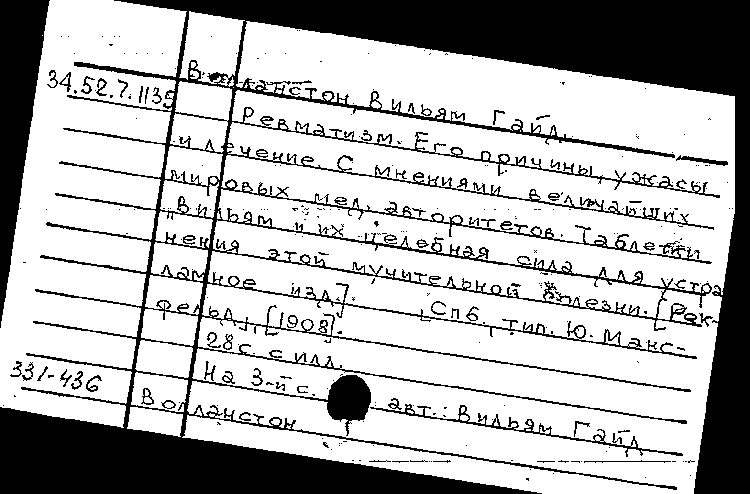 Волланстон, Вильям Гайд.
34.52.7.1135
Ревматизм. Его причины, ужасы
и лечение. С мнениями величайших
мировых мед. авторитетов. Таблетки
"Вильям" и их целебная сила для устра
нения этой мучительной болезни. [Рек-
ламное изд.]. Спб., тип. Ю. Манс-
фельд, [1908].
28 с. с илл.
На 3-й с. авт.: Вильям Гайд
331-436
Волланстон